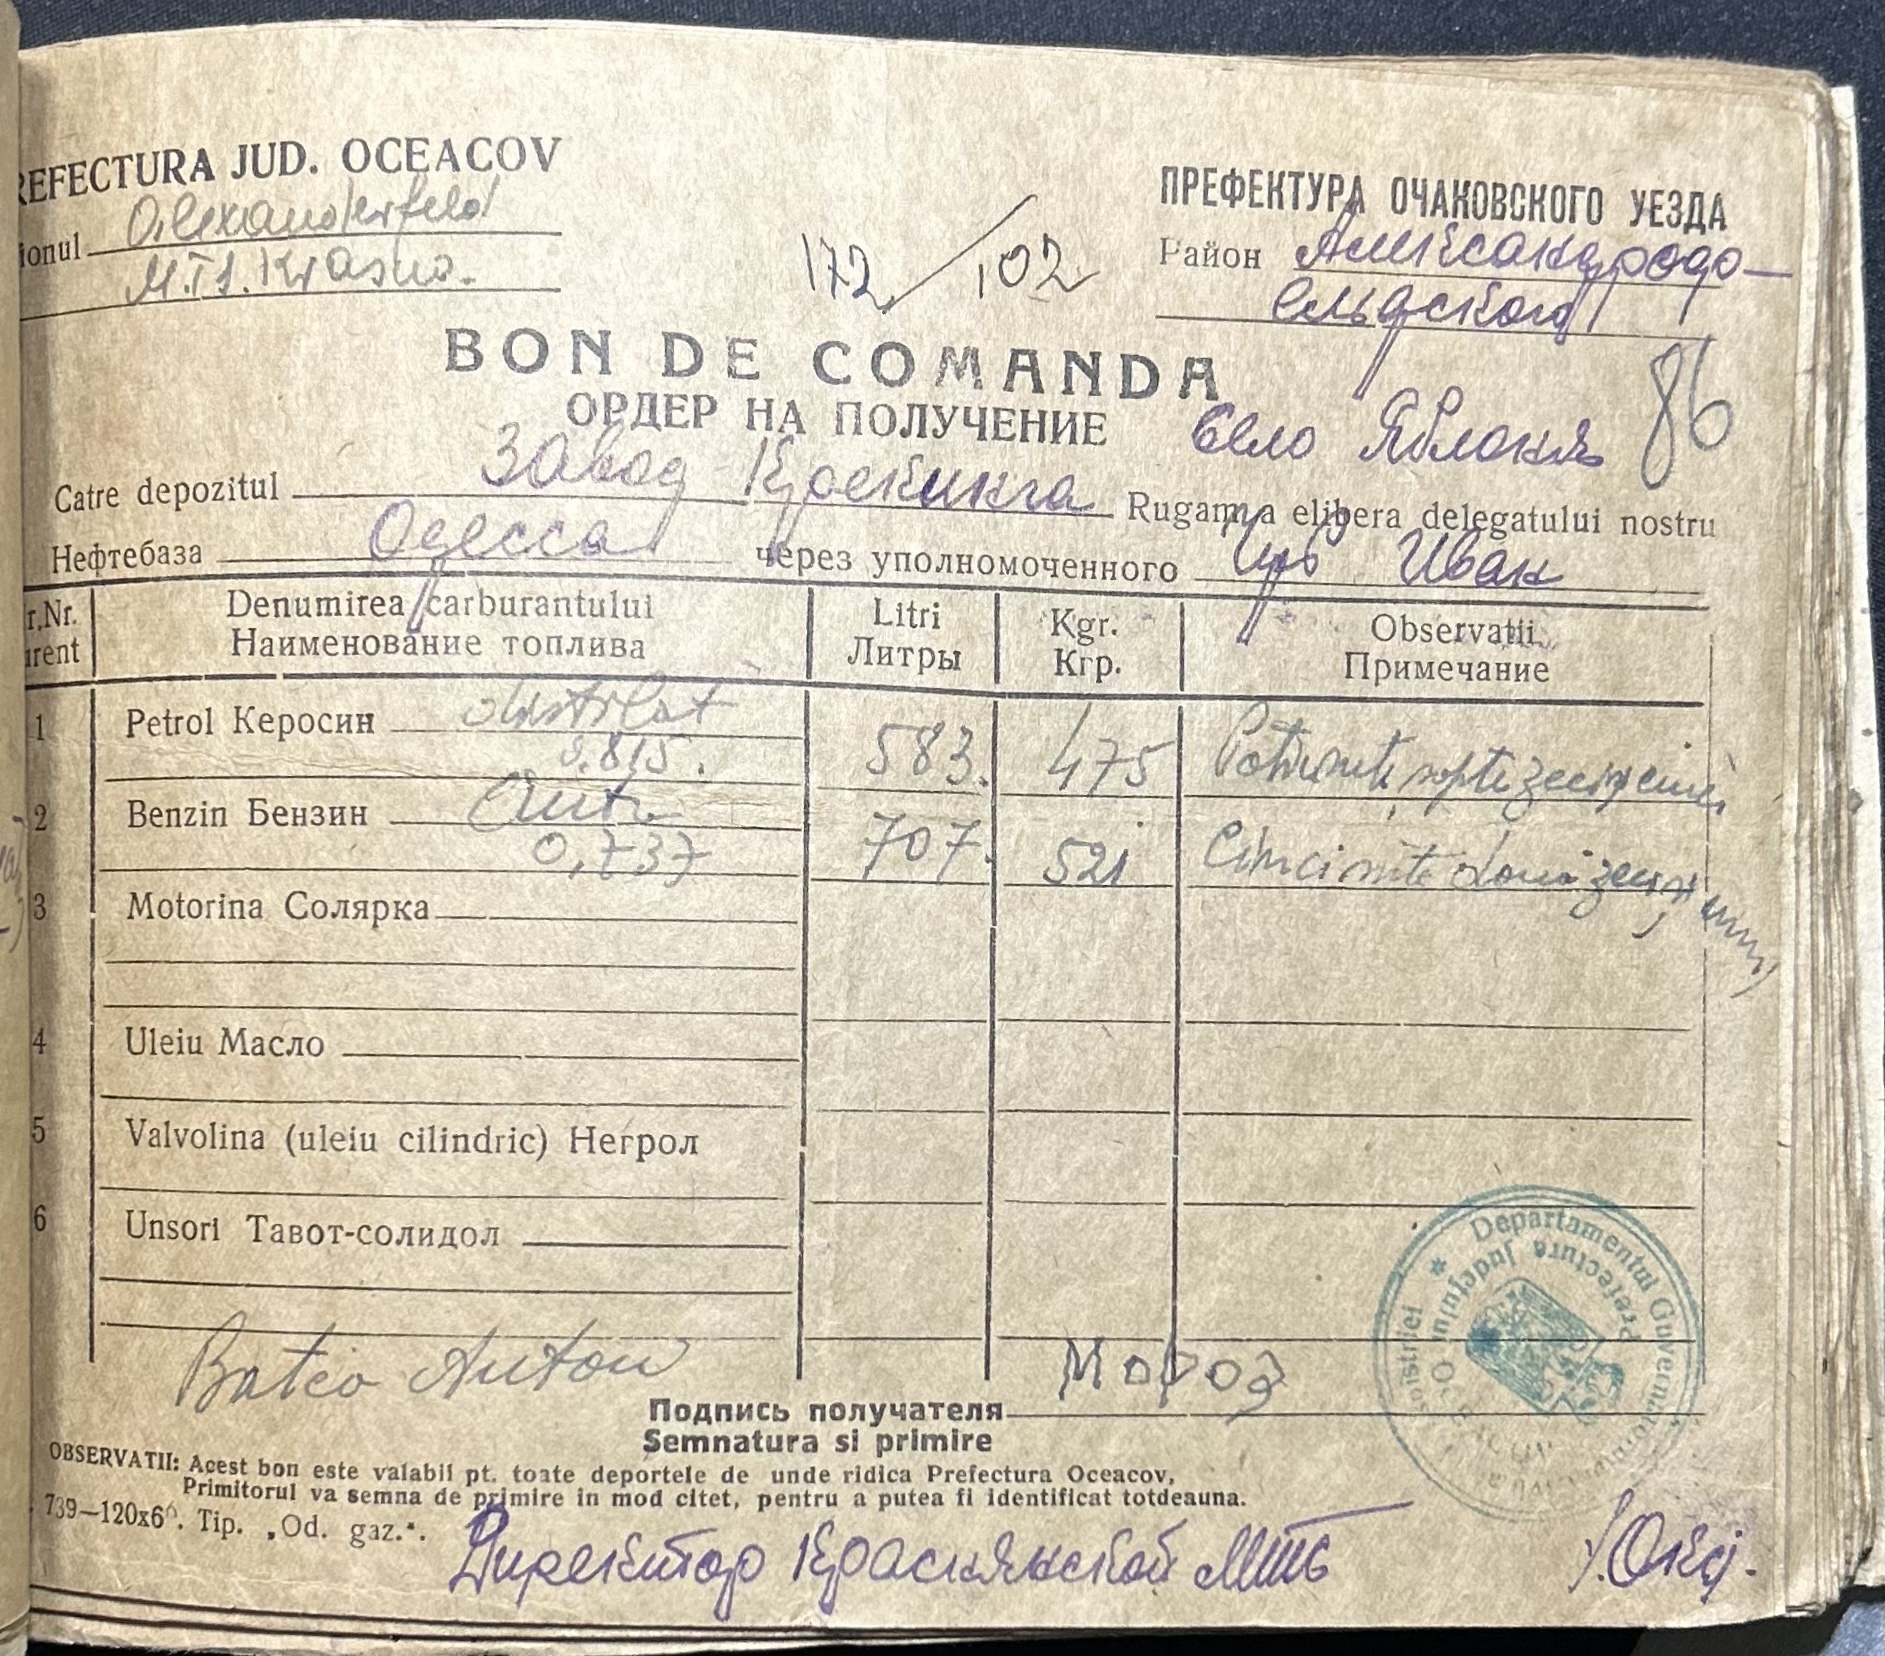 REFECTURA JUD. OCEACOV
ionul Alexanderfeld
M.T.S. Krasna.
172/102
ПРЕФЕКТУРА ОЧАКОВСКОГО УЕЗДА
Район
ельдского
86
BON DE COMANDA
ОРДЕР НА ПОЛУЧЕНИЕ Село Яблоня
Catre depozitul Завод Крекинга Rugam a elibera delegatului nostru
Нефтебаза Одесса через уполномоченного Иван
r.Nr. Denumirea carburantului Litri Kgr. Observatii
urent Наименование топлива Литры Кгр. Примечание
1 Petrol Керосин distilat
0.815. 583. 475 Patru sute șapte zeci și cinci
2 Benzin Бензин Auto
0,737 707. 521 Cinci sute două zeci și unu
3 Motorina Солярка
4 Uleiu Масло
5 Valvolina (uleiu cilindric) Негрол
6 Unsori Тавот-солидол
Batco Anton
Подпись получателя
Semnatura si primire
Departamentul Guvernator
Prefectura Județului O
OBSERVATII: Acest bon este valabil pt. toate deportele de unde ridica Prefectura Oceacov,
Primitorul va semna de primire in mod citet, pentru a putea fi identificat totdeauna.
739—120x6. Tip. „Od. gaz.“.
Директор Краснянской МТС